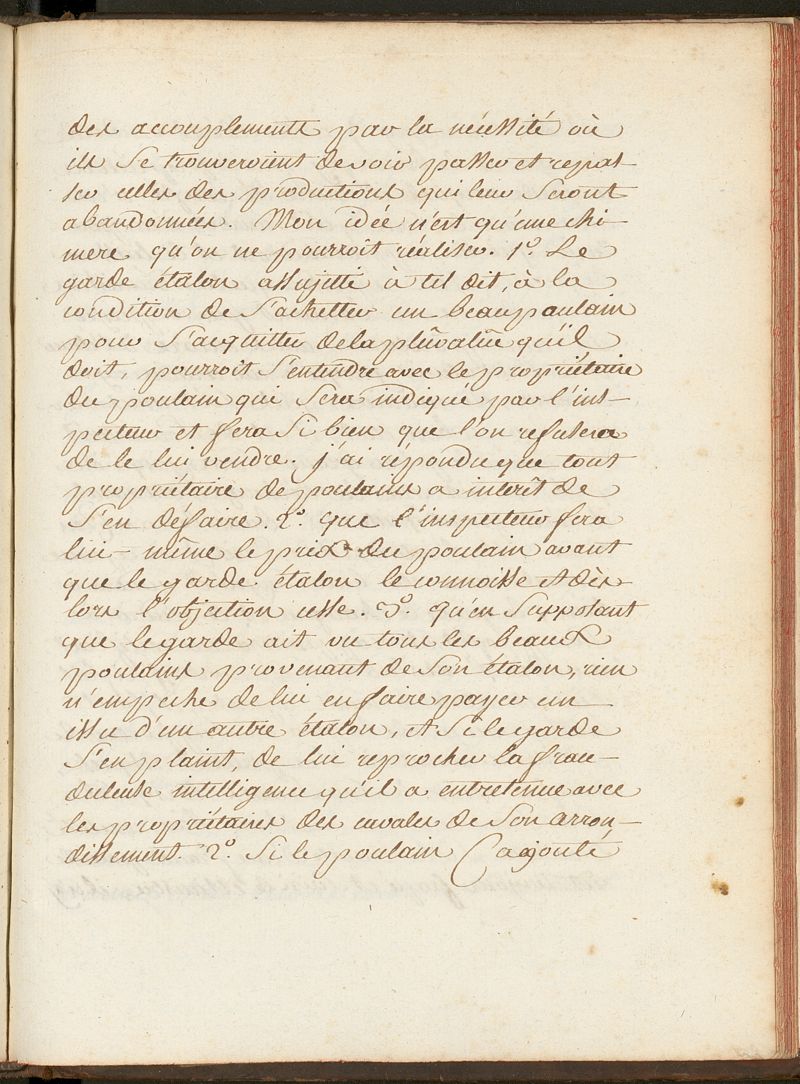 des accouplements par la nécessité où
ils se trouveroient de voir passer et repas-
ser celles des productions qui leur seront
abandonnées. Mon idée n'est qu'une chi-
mere qu'on ne pourroit réaliser. 1°. Le
garde étalon assujetti à tel dit, à la
condition de s'achetter un beau poulain
pour s'acquitter de la plûvalüe qu'il
doit, pourroit s'entendre avec le propriétaire
du poulain qui sera indiqué par l'ins-
pecteur et fera si bien que l'on refusera
de le lui vendre. j'ai repondu que tout
propriétaire de poulains a intérêt de
s'en défaire. 2°. que l'inspecteur fera
lui-même le prix du poulain avant
que le garde étalon le connoisse et dès
lors l'objection cesse. 3°. qu'en supposant
que le garde ait vu tous les beaux
poulains provenant de son étalon, rien
n'empeche de lui en faire payer un
issu d'un autre étalon, et si le garde
s'en plaint, de lui reprocher la frau-
duleuse intelligence qu'il a entretenue avec
les propriétaires des cavales de son arron-
dissement. 2°. Si le poulain (ajouté